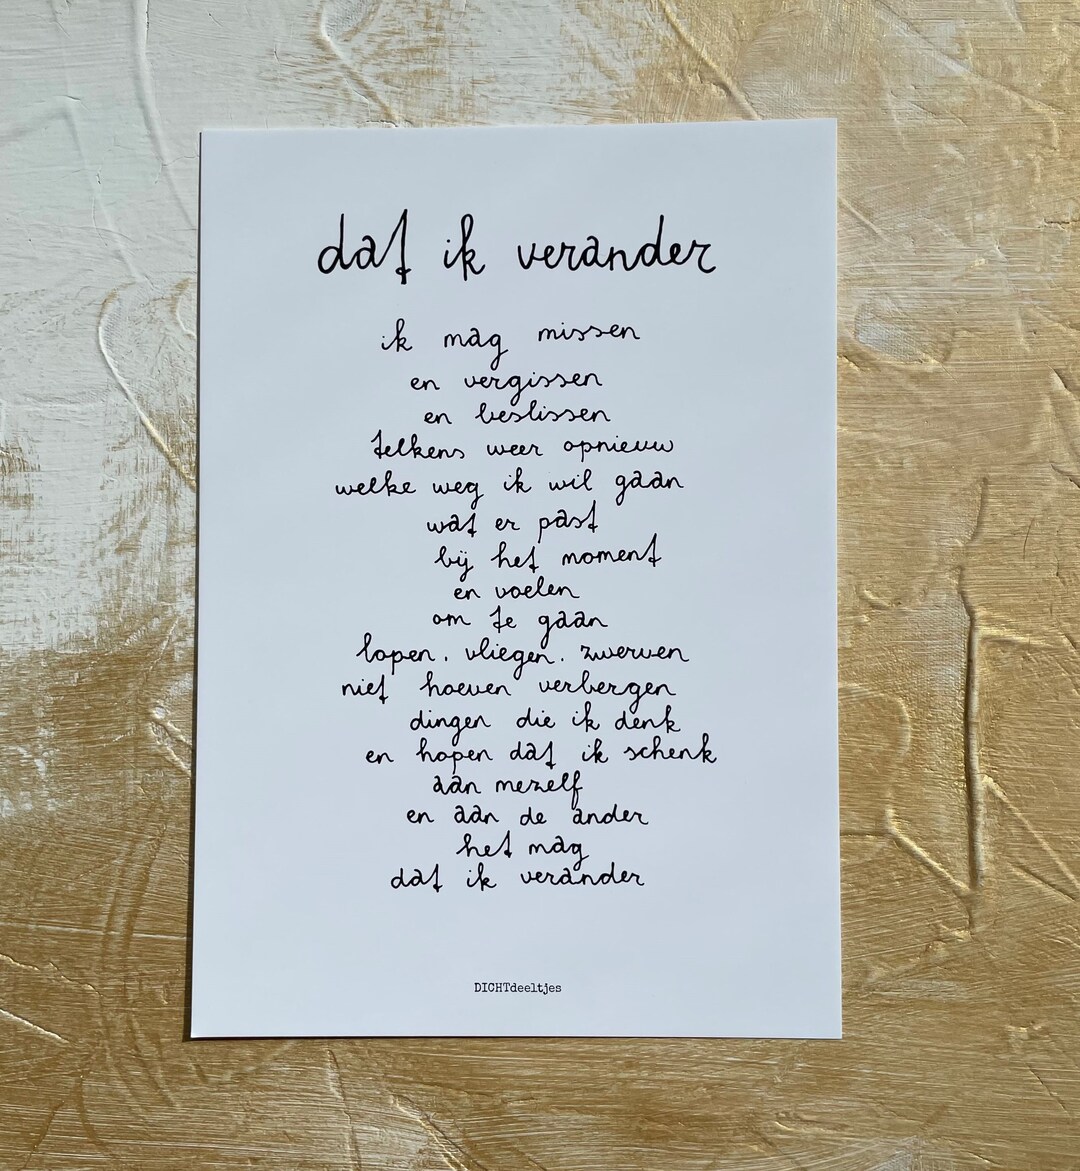 dat ik verander
ik mag missen
en vergissen
en beslissen
telkens weer opnieuw
welke weg ik wil gaan
wat er past
bij het moment
en voelen
om te gaan
lopen, vliegen, zwerven
niet hoeven verbergen
dingen die ik denk
en hopen dat ik schenk
aan mezelf
en aan de ander
het mag
dat ik verander
DICHTdeeltjes